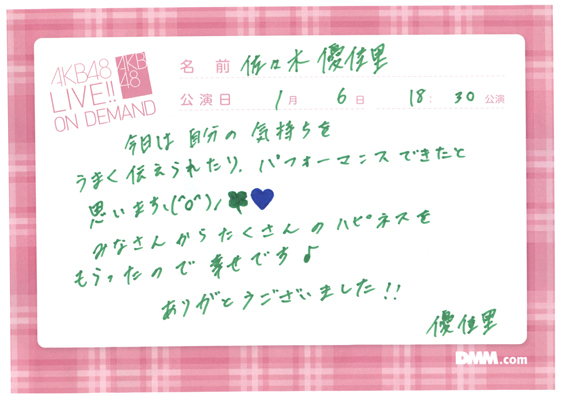 AKB48
LIVE!!
ON DEMAND
AKB
48
名 前 佐々木 優佳里
公演日 1月 6日 18:30 公演
今日は自分の気持ちを
うまく伝えられたり、パフォーマンスできたと
思いまち、(^o^)ノ
みなさんからたくさんのハピネスを
もらったので幸せです♪
ありがとうございました!!
優佳里
DMM.com